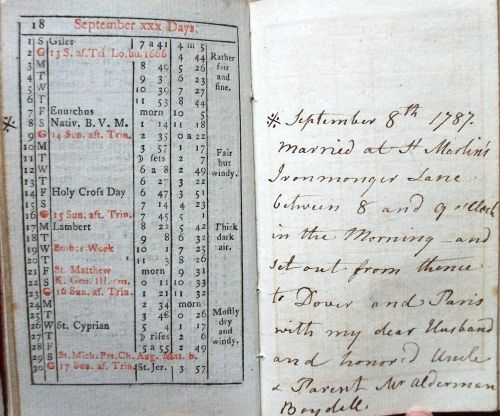 18 September xxx Days.
1 S Giles 7 a 41 4 m 5
2 G 13 S. af. Tri. Lo. bu. 1666 8 4 5 Rather
3 M 8 49 5 26 fair
4 T 9 3 6 23 and
5 W 10 39 7 44 fine.
6 T 11 53 8 44
7 F Enurchus morn 10 5
8 S Nativ. B. V. M. 1 14 11 18
9 G 14 Sun. aft. Trin. 2 35 0 a 22
10 M 3 57 1 17 Fair
11 T D sets 2 7 but
12 W 6 a 8 2 49 windy.
13 T 6 27 3 22
14 F Holy Cross Day 6 47 3 51
15 S 7 14 4 23
16 G 15 Sun. aft. Trin. 7 45 5 1
17 M Lambert 8 22 5 42 Thick
18 T 9 8 6 32 dark
19 W Ember Week 10 1 7 25 air.
20 T 11 3 8 26
21 F St. Matthew morn 9 31
22 S K. Geo. III. 0 11 10 33
23 G 16 Sun. af. Trin. 1 21 11 32
24 M 2 34 morn Mostly
25 T 3 48 0 21 dry
26 W St. Cyprian 5 4 1 17 and
27 T D rises 2 2 windy.
28 F 5 a 55 2 49
29 S St. Mich. Pr. Ch. Aug. Mat. b.
30 G 17 Sun. af. Trin. St. Jer. 3 57
※ September 8th 1787.
married at St Martin's
Ironmonger Lane
between 8 and 9 o'Clock
in the Morning – and
set out from thence
to Dover and Paris
with my dear Husband
and honored Uncle
& Parent Mr Alderman
Boydell.